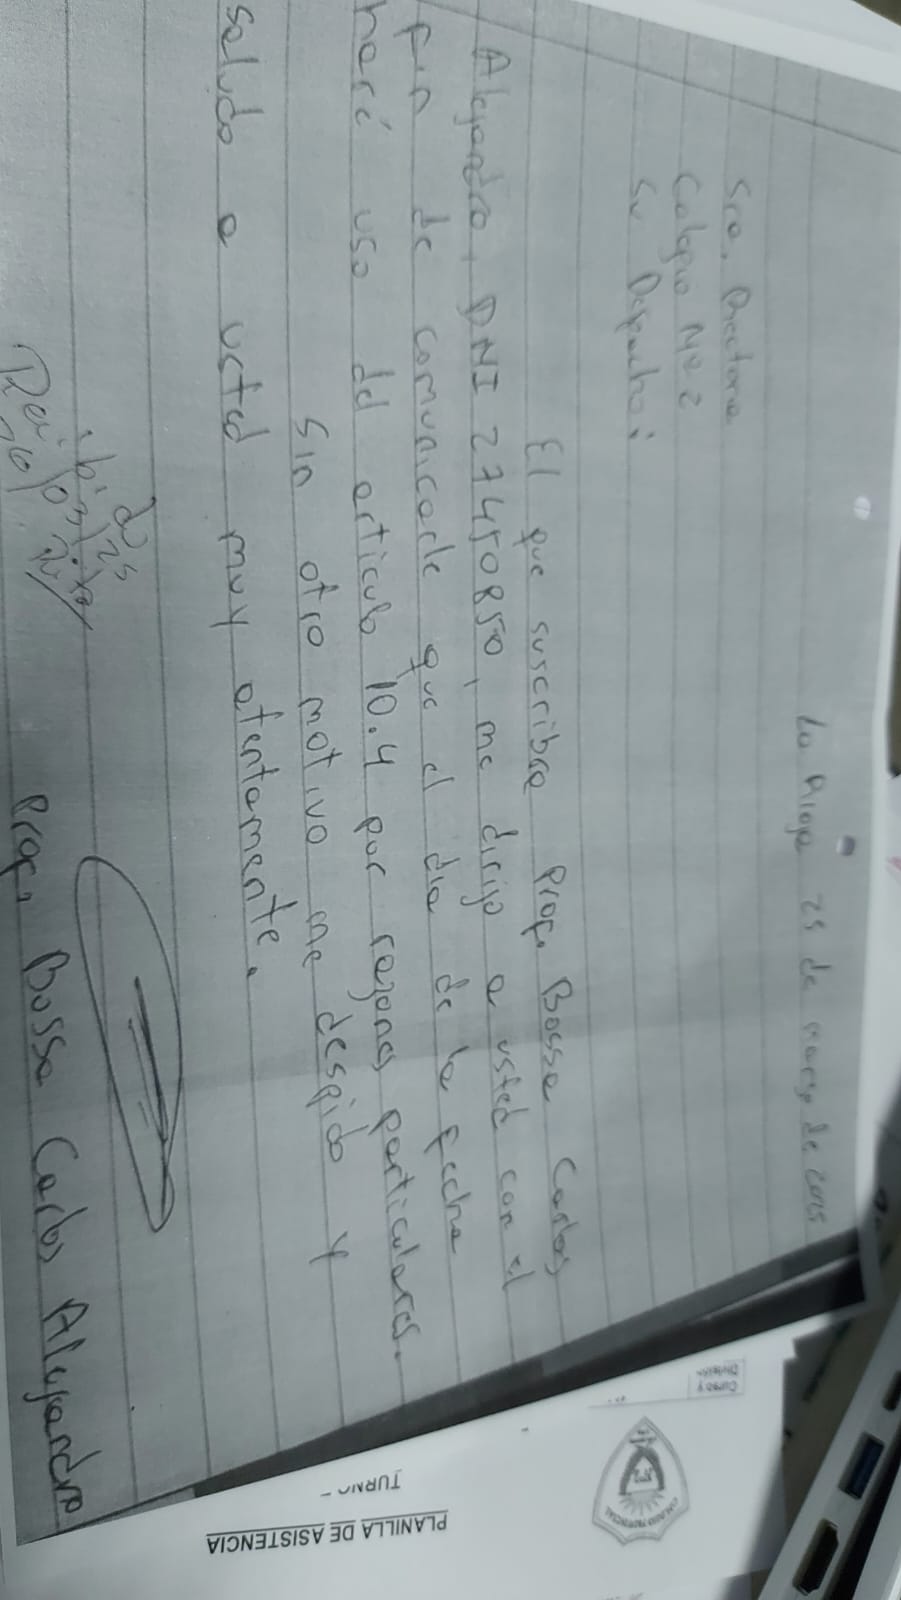 La Rioja 25 de marzo de 2025
Sra. Directora
Colegio Nº 2
Su Despacho:
El que suscribe Prof. Bossa Carlos
Alejandro, DNI 27450850, me dirijo a usted con el
fin de comunicarle que el día de la fecha
haré uso del articulo 10.4 por razones particulares.
Sin otro motivo me despido y
saludo a usted muy atentamente.
Prof. Bossa Carlos Alejandro
PLANILLA DE ASISTENCIA
TURNO
Curso y
División